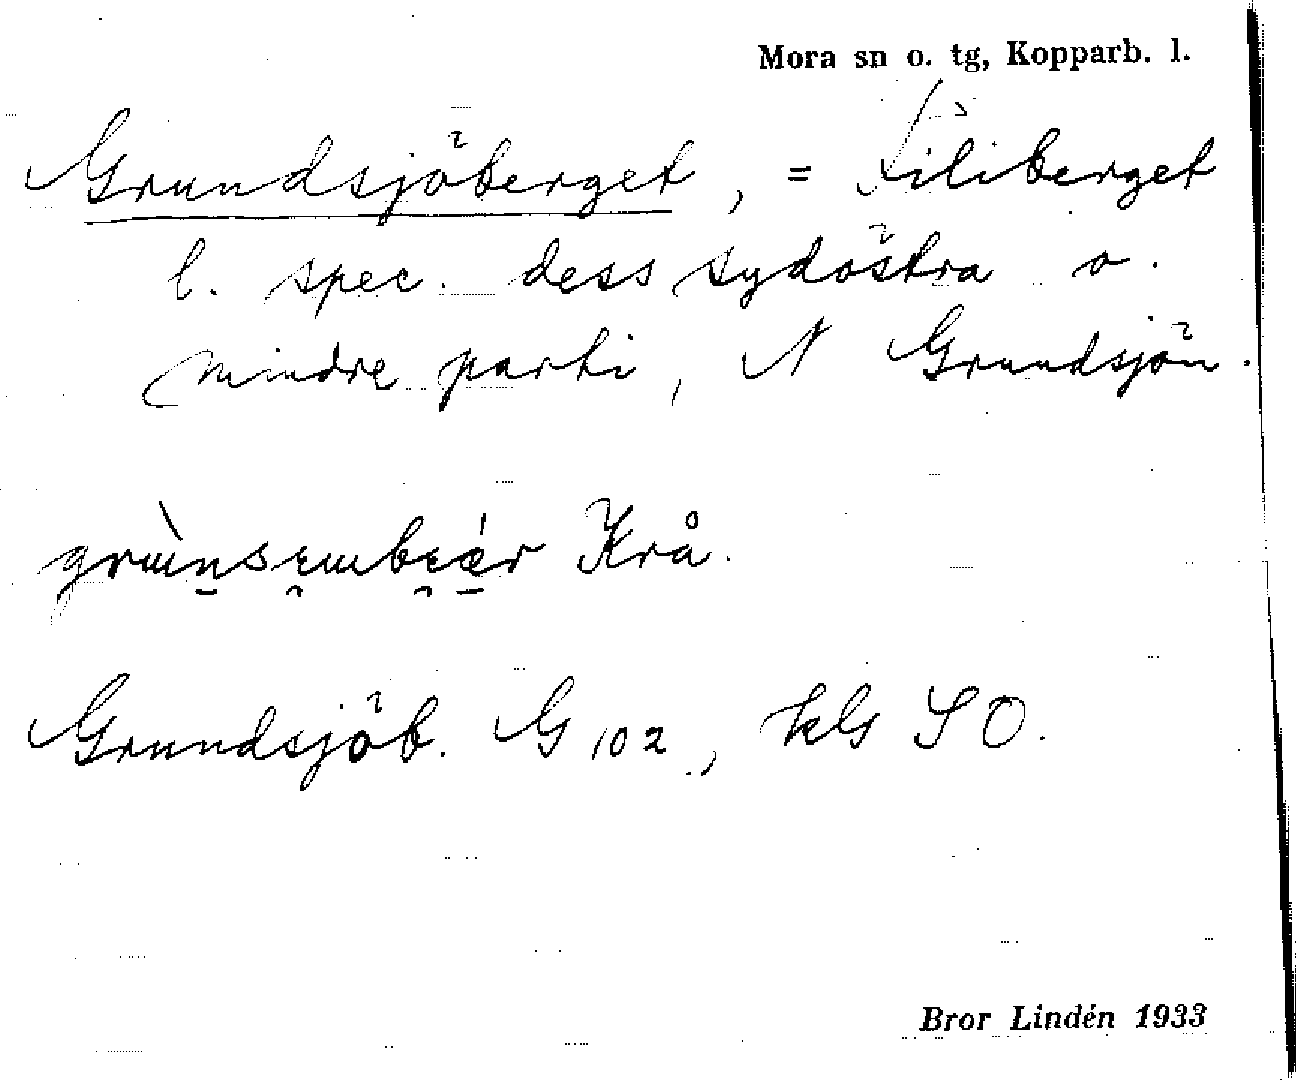 Mora sn o. tg, Kopparb. l.
Grundsjöberget, = Filiberget
l. spec. dess sydöstra o.
mindre parti, N Grundsjön.
Krå.
Grundsjöb. G 102, kls SO.
Bror Lindén 1933